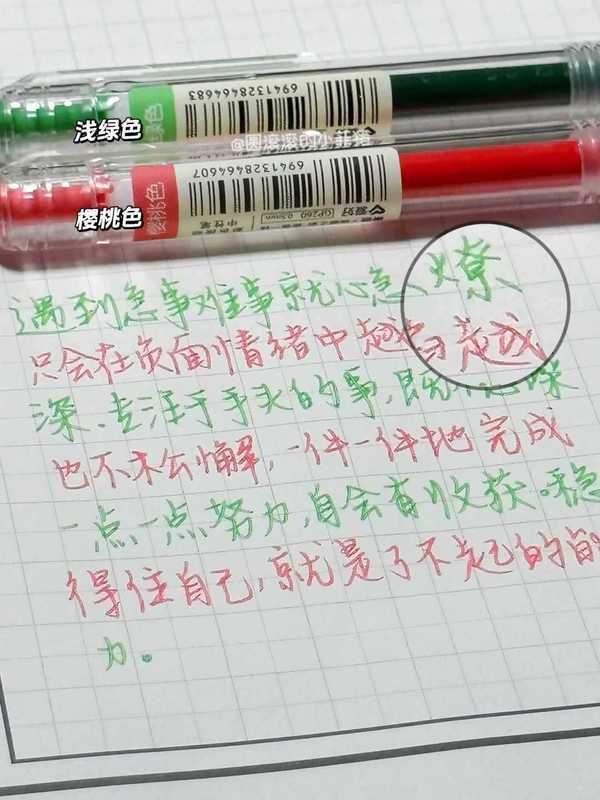 浅绿色
绿色
6941328464683
@圆滚滚的小菲猪
樱桃色
樱桃色
6941328464607
爱好
GP260 0.5mm
中性笔
遇到急事难事就心急、燎
只会在负面情绪中越
深、专注于手头的事,既
也不松懈,一件一件地完成
一点一点努力,自会有收获。稳
得住自己,就是了不起的
力。